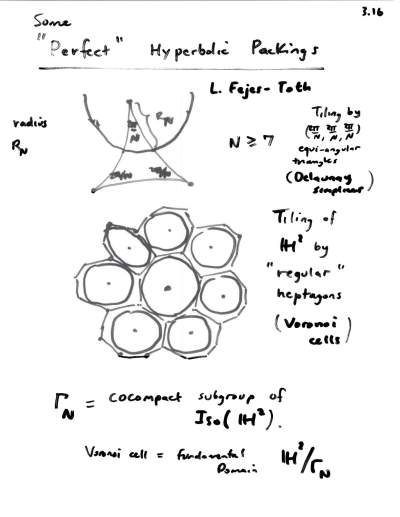 3.16
Some
"Perfect" Hyperbolic Packings
L. Fejes-Toth
radius
R_N
R_N
2π/N
2π/N
2π/N
N ≥ 7
Tiling by
(2π/N, 2π/N, 2π/N)
equi-angular
triangles
(Delaunay
simplices)
Tiling of
ℍ² by
"regular"
heptagons
(Voronoi
cells)
Γ_N = cocompact subgroup of
Iso(ℍ²).
Voronoi cell = fundamental
Domain ℍ²/Γ_N